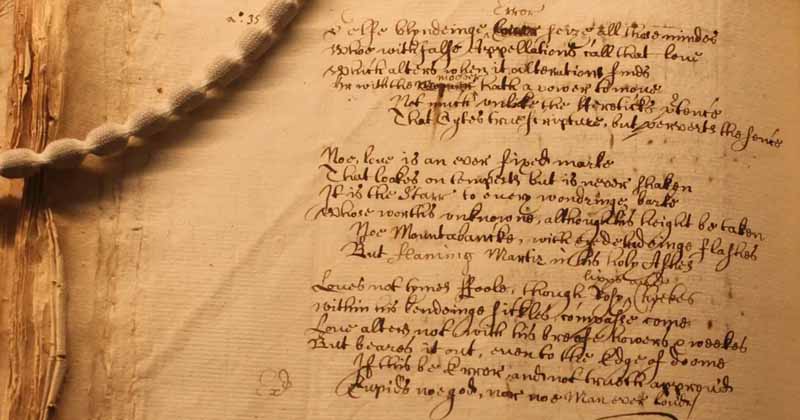 Error
n.º 35
Selfe blyndeinge seize all those mindes
Whoe with false Appellations call that love
Which alters when it alterations finds
mover
Or with the hath a power to move
Not much unlike the Hereticks ptence
That Cytes true scripture, but perverts the sence
Noe, love is an ever fixed marke
That lookes on tempests but is never shaken
It is the Starr to every wondringe barke
Whose worth's unknowne, although his height be taken
Noe Mountebancke, with eye deludeinge flashes
But flaming Martir in his holy Ashes
lipps and
Loves not tymes Foole, though Rosy Cheekes
within his bendeinge sickles compasse come
Love alters not with his breefe howers & weekes
But beares it out, even to the Edge of doome
If this be Error and not truth approv'd
Cupids noe god, nor noe Man ever lov'd